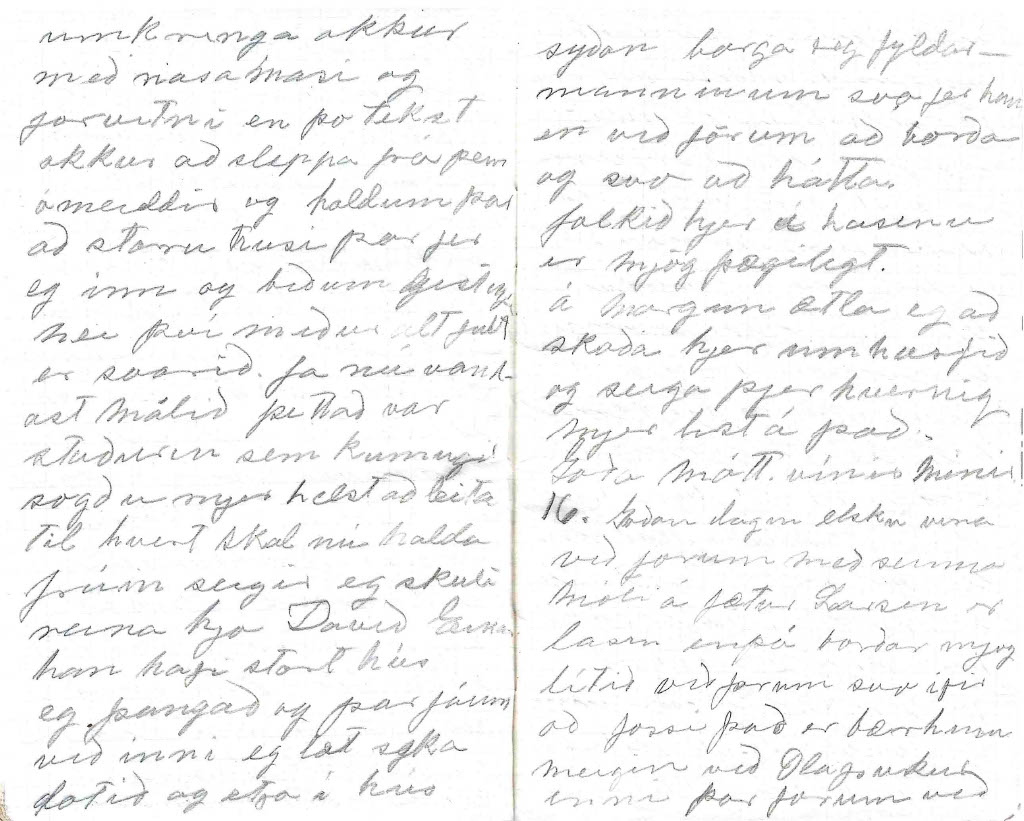 umkringa okkur
með nasa masi og
forvitni en þo tekst
okkur að sleppa frá þem
ómeiddir og holdum þar
að storu husi þar fer
eg inn og biðum gistingu
nei því miður alt fult
er svarið. Ja nú vand-
ast málið þettað var
staðurin sem kunnugir
sogðu myer helst að leita
til hvert skal nú halda
frúin seigir eg skuli
reina hjo David
han hafi stort hús
eg þangað og þar fáum
við inni eg læt sækja
dotið og eta i hús
syðan borga eg fyldar-
manninum svo fer han
en við förum að borða
og svo að hátta.
folkið hjer á husenu
er mjög þægilegt.
á morgun ætla eg að
skoða hjer umhverfið
og seiga þjer hvernig
myer list á það.
Goða nótt vinir mínir
16. Goðan dagin elsku vina
við forum með seinna
móti á fætur Larsen er
lasin en þá borðar mjog
litið við forum svo ifir
að fossi það er bær hinu
meigin við Olafsvikur
inni þar forum við